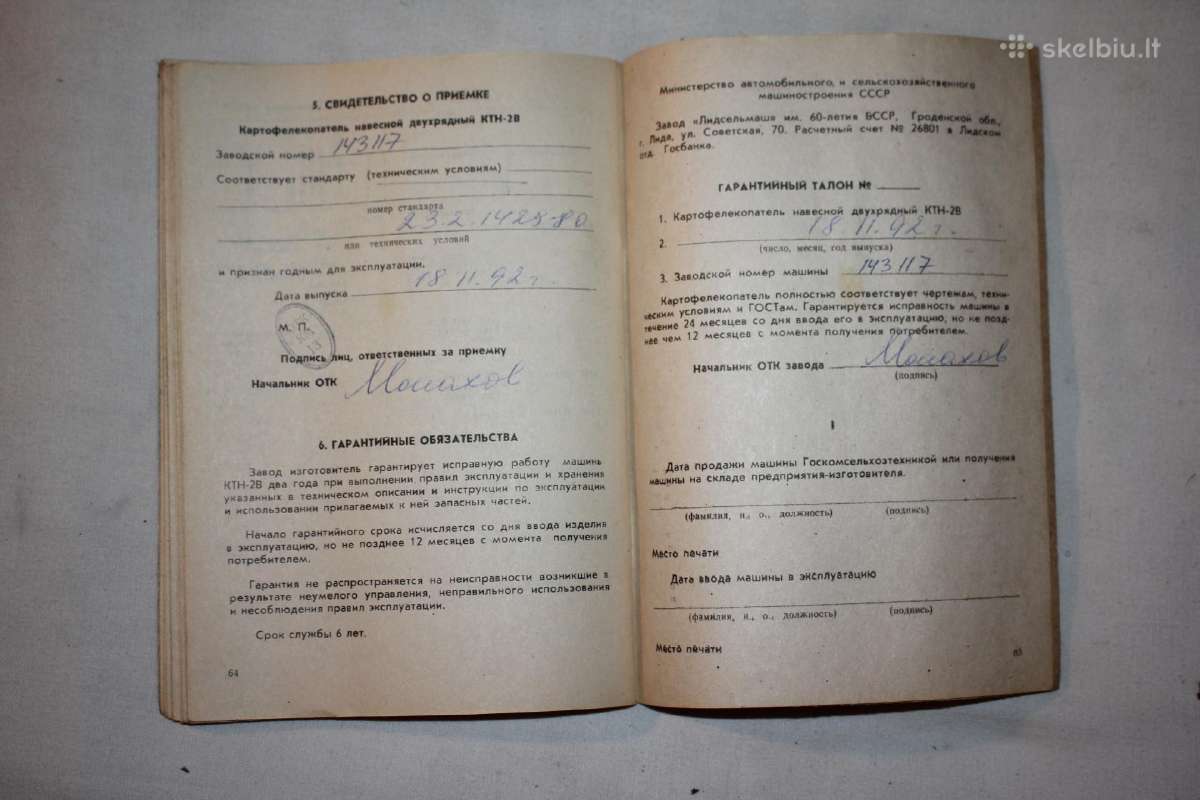 5. СВИДЕТЕЛЬСТВО О ПРИЕМКЕ
Картофелекопатель навесной двухрядный КТН-2В
Заводской номер 143117
Соответствует стандарту (техническим условиям)
номер стандарта
23.2.1425-80
или технических условий
и признан годным для эксплуатации.
Дата выпуска 18.11.92г.
М. П.
Подпись лиц, ответственных за приемку
Начальник ОТК Монахов
6. ГАРАНТИЙНЫЕ ОБЯЗАТЕЛЬСТВА
Завод изготовитель гарантирует исправную работу машины
КТН-2В два года при выполнении правил эксплуатации и хранения
указанных в техническом описании и инструкции по эксплуатации
и использовании прилагаемых к ней запасных частей.
Начало гарантийного срока исчисляется со дня ввода изделия
в эксплуатацию, но не позднее 12 месяцев с момента получения
потребителем.
Гарантия не распространяется на неисправности возникшие в
результате неумелого управления, неправильного использования
и несоблюдения правил эксплуатации.
Срок службы 6 лет.
64
skelbiu.lt
Министерство автомобильного и сельскохозяйственного
машиностроения СССР
Завод «Лидсельмаш» им. 60-летия БССР, Гроденской обл.,
г. Лида, ул. Советская, 70. Расчетный счет № 26801 в Лидском
отд. Госбанка.
ГАРАНТИЙНЫЙ ТАЛОН №
1. Картофелекопатель навесной двухрядный КТН-2В
2. 18.11.92г.
(число, месяц, год выпуска)
3. Заводской номер машины 143117
Картофелекопатель полностью соответствует чертежам, техни-
ческим условиям и ГОСТам. Гарантируется исправность машины в
течение 24 месяцев со дня ввода его в эксплуатацию, но не позд-
нее чем 12 месяцев с момента получения потребителем.
Начальник ОТК завода Монахов
(подпись)
I
Дата продажи машины Госкомсельхозтехникой или получения
машины на складе предприятия-изготовителя.
(фамилия, и., о., должность) (подпись)
Место печати
Дата ввода машины в эксплуатацию
(фамилия, и., о., должность) (подпись)
Место печати
65